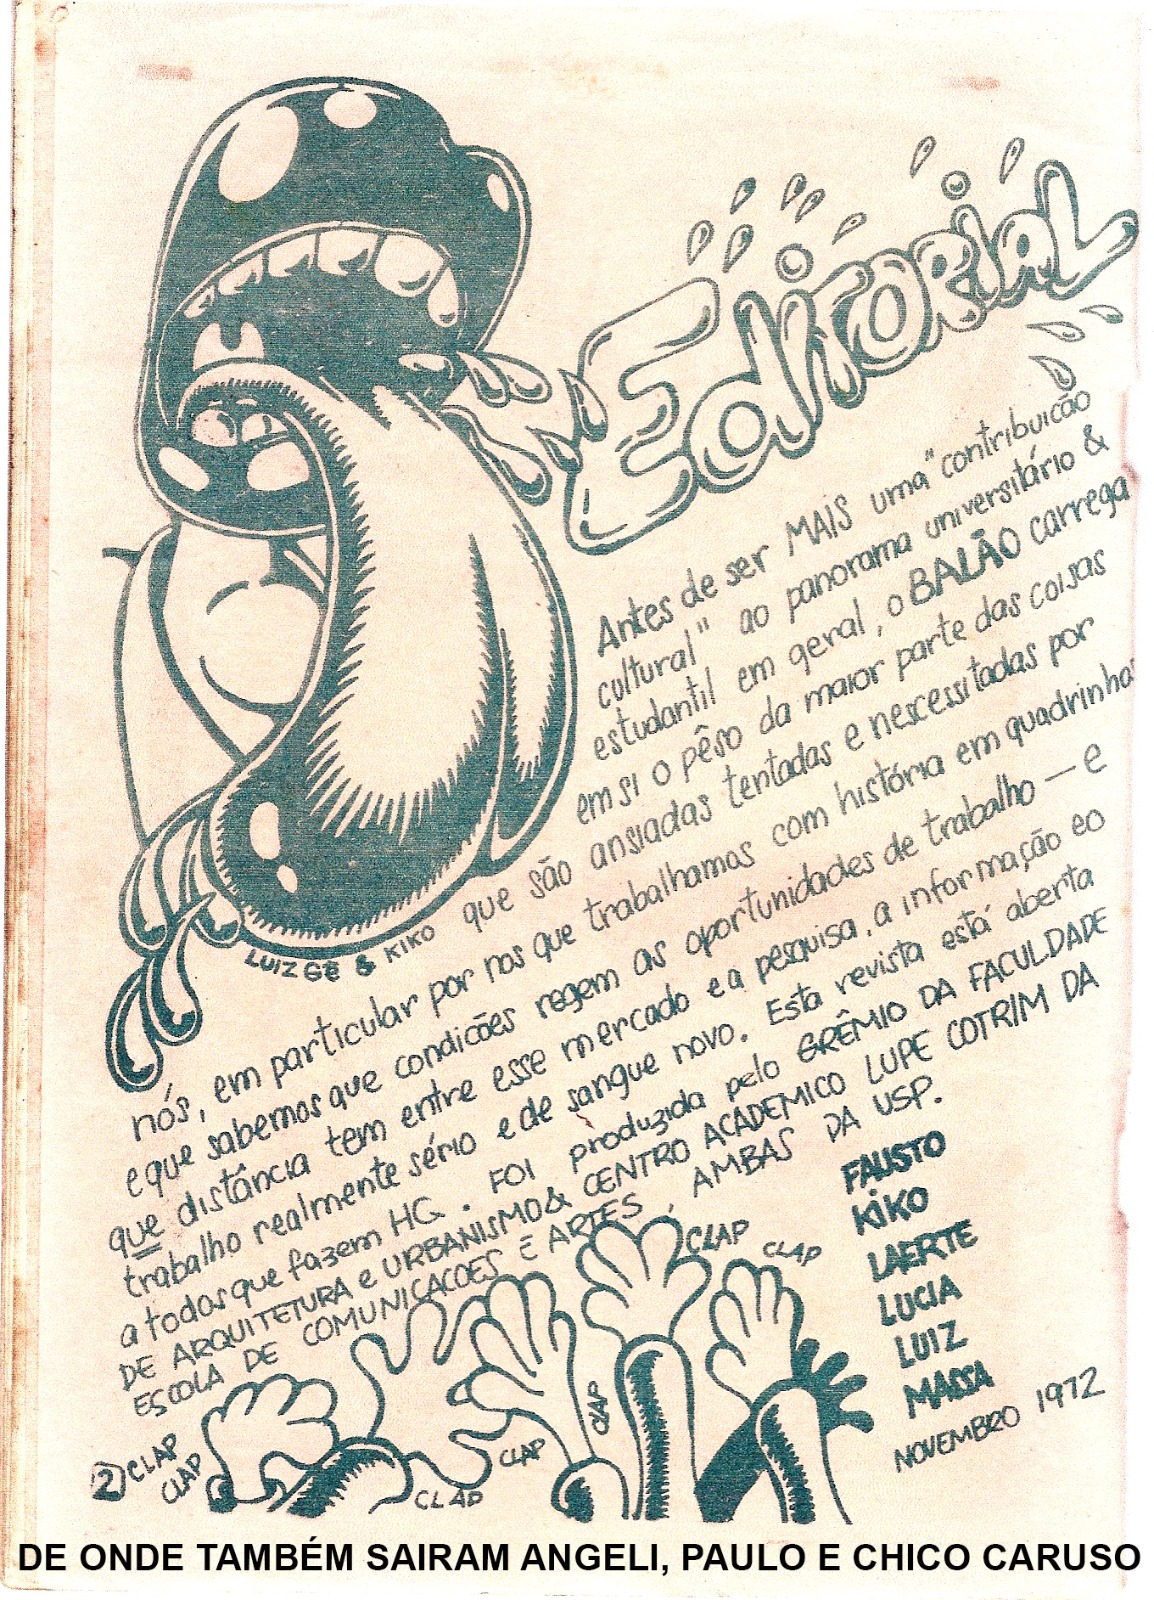 Editorial
Antes de ser MAIS uma "contribuicão
cultural" ao panorama universitário &
estudantil em geral, o BALÃO carrega
em si o pêso da maior parte das coisas
que são ansiadas tentadas e nescessitadas por
nós, em particular por nos que trabalhamos com história em quadrinhos
e que sabemos que condicões regem as oportunidades de trabalho — e
que distância tem entre esse mercado e a pesquisa, a informação e o
trabalho realmente sério e de sangue novo. Esta revista está aberta
a todos que fazem HQ. FOI produzida pelo GRÊMIO DA FACULDADE
DE ARQUITETURA e URBANISMO & CENTRO ACADEMICO LUPE COTRIM DA
ESCOLA DE COMUNICACOES E ARTES, AMBAS DA USP.
LUIZ GÊ & KIKO
FAUSTO
KIKO
LAERTE
LUCIA
LUIZ
MASSA
NOVEMBRO 1972
CLAP
CLAP
CLAP
CLAP
CLAP
CLAP
CLAP
2
DE ONDE TAMBÉM SAIRAM ANGELI, PAULO E CHICO CARUSO